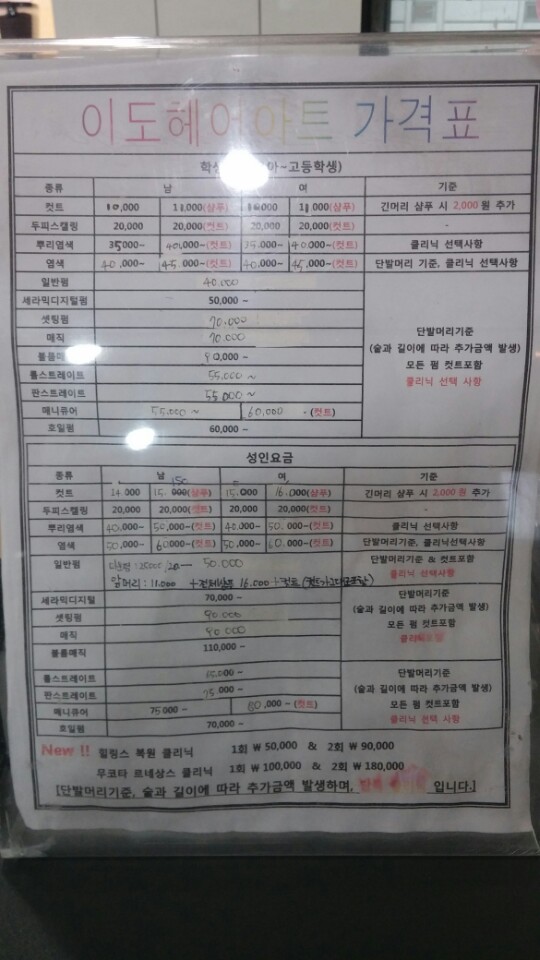 이도헤어아트 가격표
학생 아~고등학생)
종류 남 여 기준
컷트 10,000 11,000(샴푸) 10,000 11,000(샴푸) 긴머리 샴푸 시 2,000원 추가
두피스캘링 20,000 20,000(컷트) 20,000 20,000(컷트) -
뿌리염색 35,000~ 40,000~(컷트) 35,000~ 40,000~(컷트) 클리닉 선택사항
염색 40,000~ 45,000~(컷트) 40,000~ 45,000~(컷트) 단발머리 기준, 클리닉 선택사항
일반펌 40,000
세라믹디지털펌 50,000 ~
셋팅펌 70,000
매직 70,000
볼륨매직 90,000 ~
단발머리기준
(숱과 길이에 따라 추가금액 발생)
모든 펌 컷트포함
클리닉 선택 사항
롤스트레이트 55,000 ~
판스트레이트 55,000 ~
매니큐어 55,000 ~ 60,000 ~(컷트)
호일펌 60,000 ~
성인요금
종류 남 여 기준
컷트 14,000 15,000(샴푸) 15,000 16,000(샴푸) 긴머리 샴푸 시 2,000원 추가
두피스캘링 20,000 20,000(컷트) 20,000 20,000(컷트) -
뿌리염색 40,000~ 50,000~(컷트) 40,000~ 50,000~(컷트) 클리닉 선택사항
염색 50,000~ 60,000~(컷트) 50,000~ 60,000~(컷트) 단발머리기준, 클리닉선택사항
일반펌 50,000
앞머리: 11,000
단발머리기준 & 컷트포함
클리닉 선택사항
세라믹디지털 70,000 ~
셋팅펌 90,000
매직 90,000
볼륨매직 110,000 ~
단발머리기준
(숱과 길이에 따라 추가금액 발생)
모든 펌 컷트포함
롤스트레이트
판스트레이트 75,000 ~
매니큐어 75,000 ~ 80,000 ~(컷트)
호일펌 70,000 ~
단발머리기준
(숱과 길이에 따라 추가금액 발생)
모든 펌 컷트포함
클리닉 선택 사항
New !! 힐링스 복원 클리닉 1회 ₩ 50,000 & 2회 ₩ 90,000
무코타 르네상스 클리닉 1회 ₩ 100,000 & 2회 ₩ 180,000
[단발머리기준, 숱과 길이에 따라 추가금액 발생하며, 입니다.]